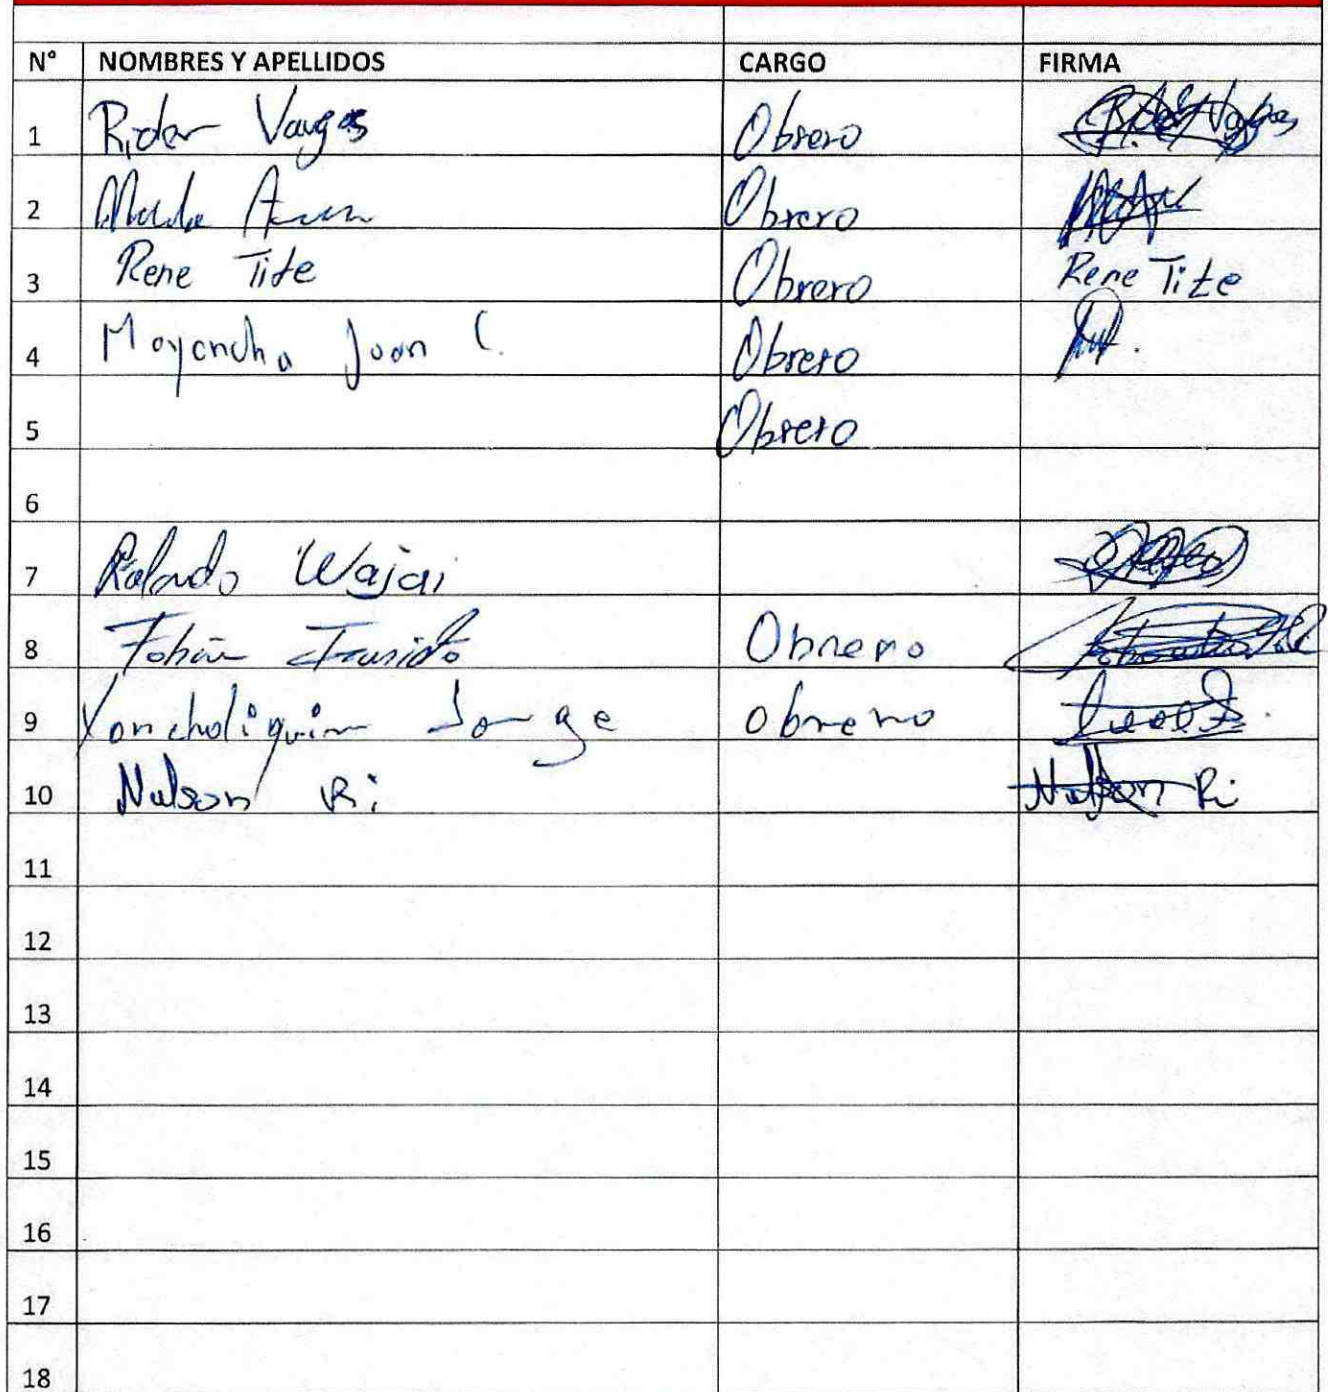 N° NOMBRES Y APELLIDOS CARGO FIRMA
1 Rider Vargas Obrero
2 Obrero
3 Rene Tite Obrero Rene Tite
4 Mayancha Juan C. Obrero
5 Obrero
6
7 Rolando Wajai
8 Fabian Obrero
9 Yancholiquin Jorge obrero
10 Nelson Ri Nelson Ri
11
12
13
14
15
16
17
18